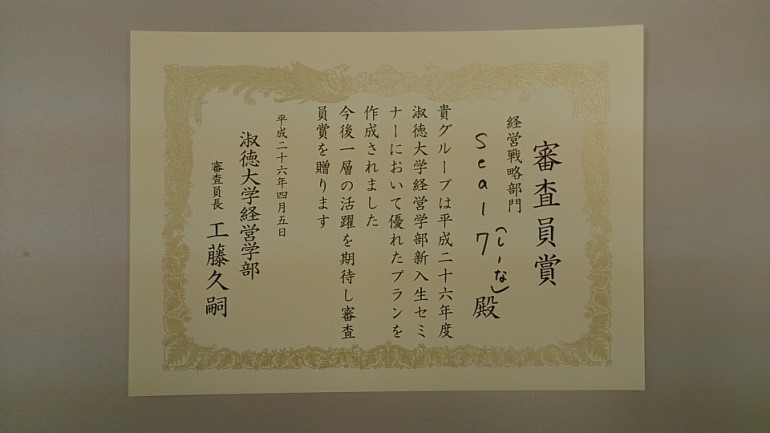 審査員賞
経営戦略部門
seal7(しーな)殿
貴グループは平成二十六年度
淑徳大学経営学部新入生セミ
ナーにおいて優れたプランを
作成されました
今後一層の活躍を期待し審査
員賞を贈ります
平成二十六年四月五日
淑徳大学経営学部
審査員長 工藤久嗣